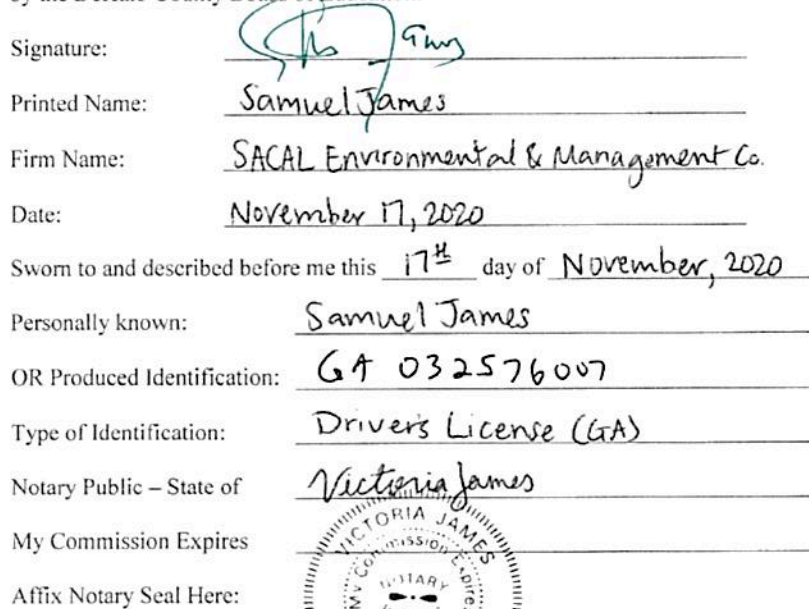 Signature:
Printed Name: Samuel James
Firm Name: SACAL Environmental & Management Co.
Date: November 17, 2020
Sworn to and described before me this 17th day of November, 2020
Personally known: Samuel James
OR Produced Identification: GA 032576007
Type of Identification: Drivers License (GA)
Notary Public – State of Victoria James
My Commission Expires
VICTORIA JAMES
My Commission Expires
NOTARY
Affix Notary Seal Here: